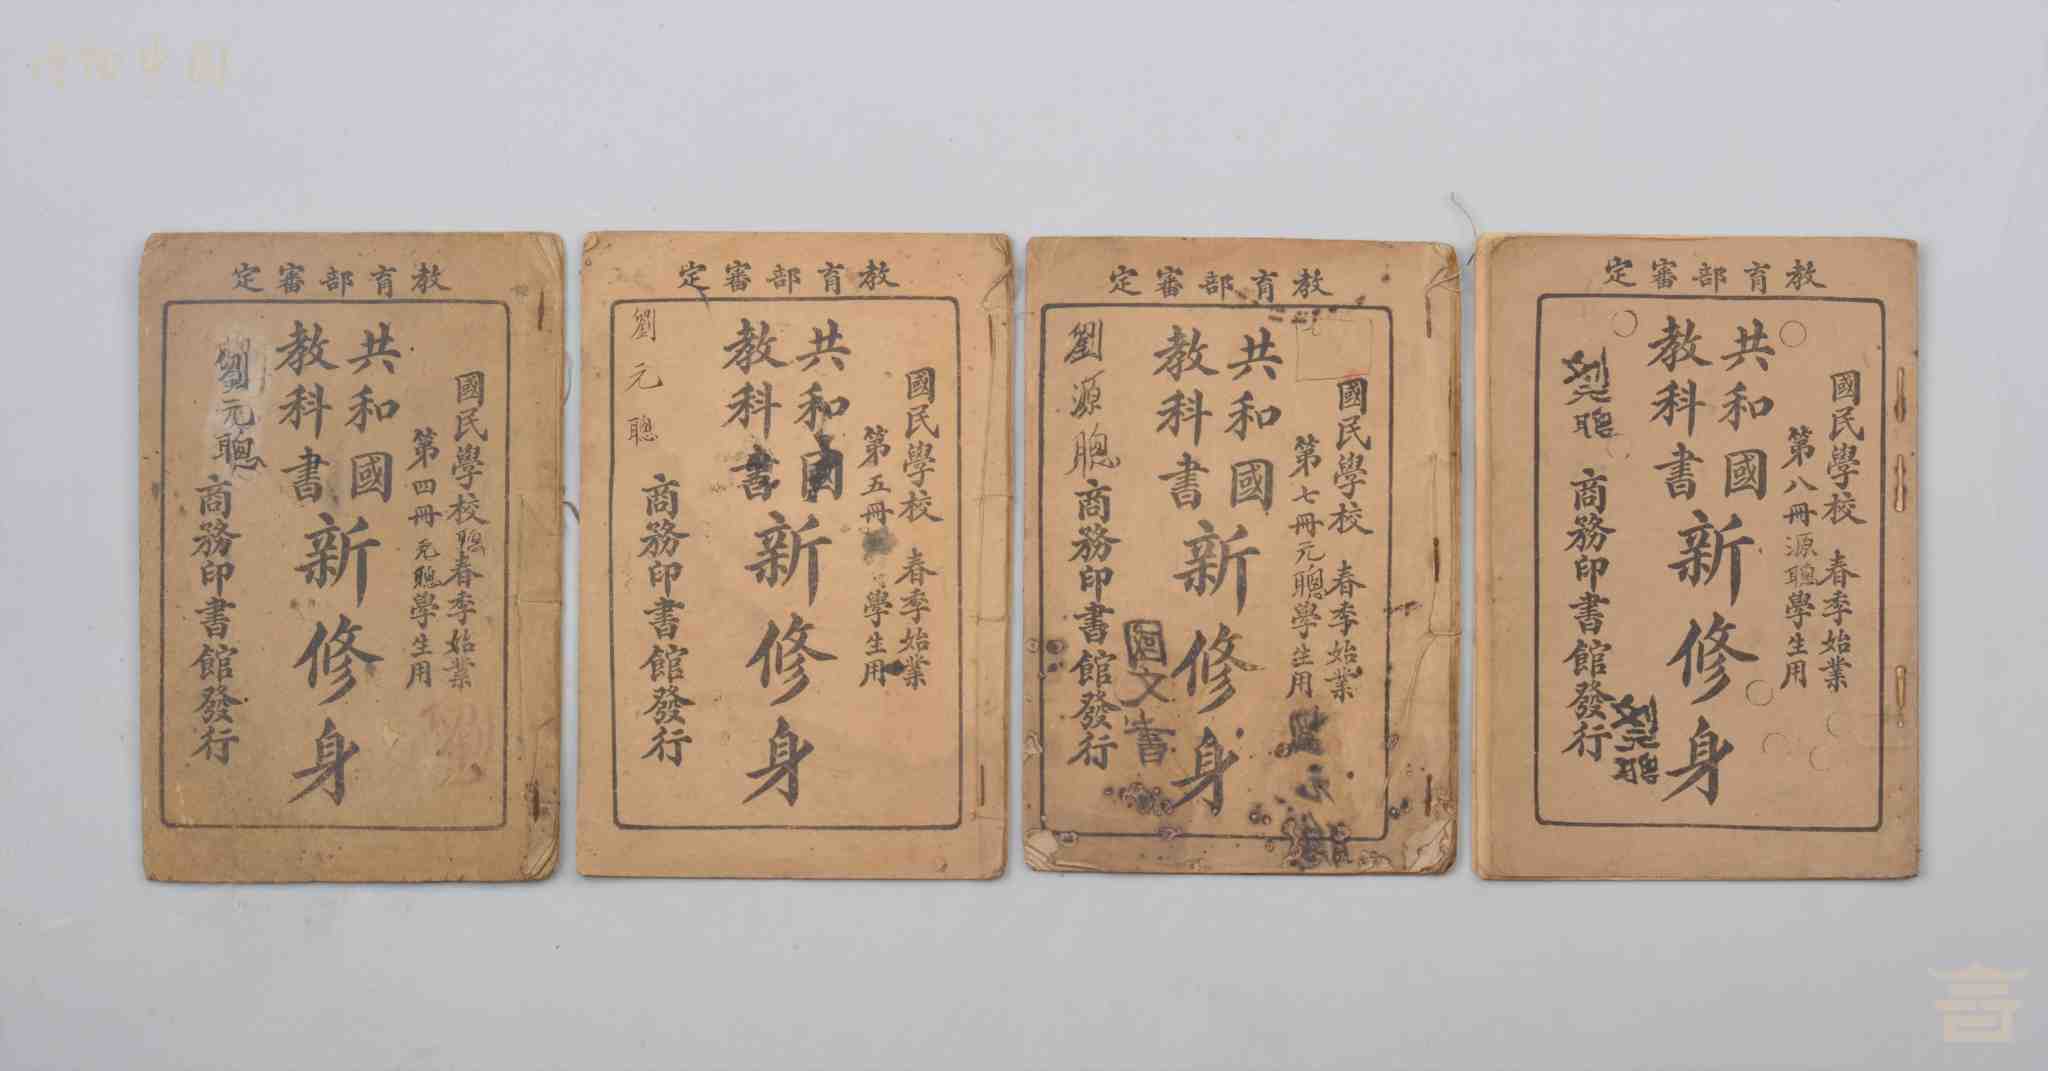 博物中国
教育部審定
國民學校 春季始業
聰
第四冊 學生用
元聰
共和國
教科書
新修身
商務印書館發行
劉元聰
劉
教育部審定
國民學校 春季始業
第五冊 學生用
共和國
教科書
新修身
商務印書館發行
劉元聰
教育部審定
國民學校 春季始業
第七冊 學生用
元聰
共和國
教科書
新修身
商務印書館發行
劉源聰
文書
教育部審定
國民學校 春季始業
第八冊 學生用
源聰
共和國
教科書
新修身
商務印書館發行
聰